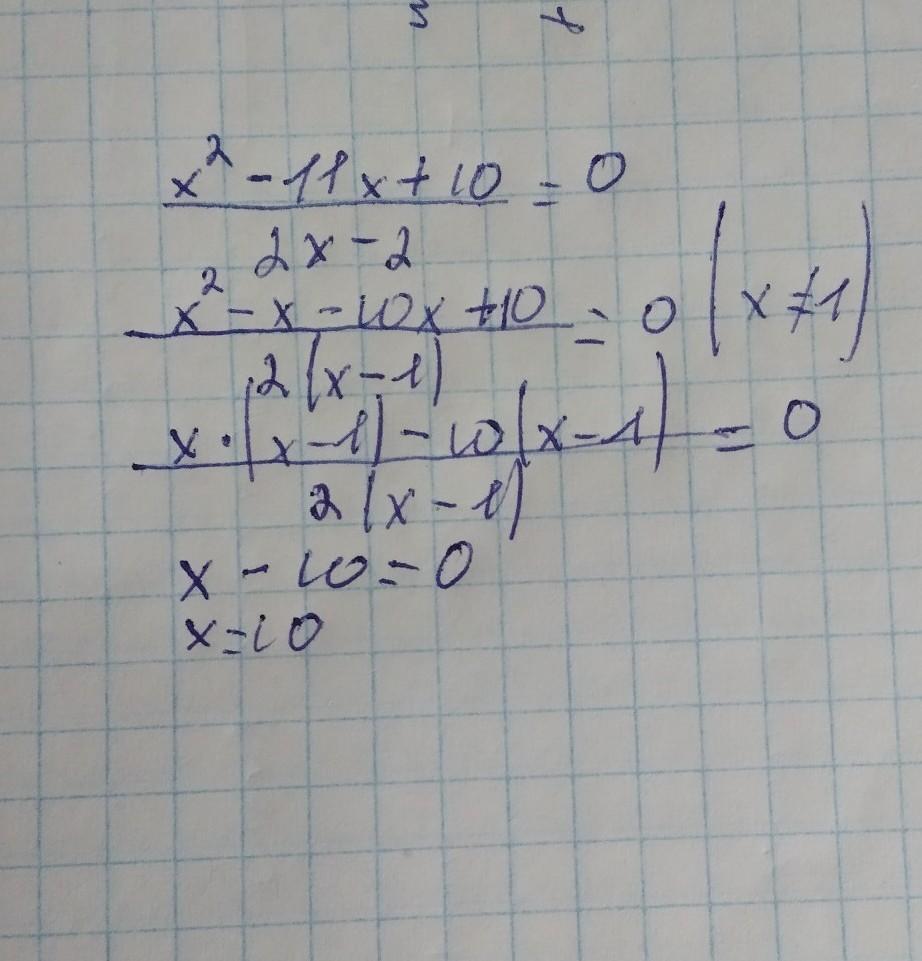 x² - 11x + 10 / 2x - 2 = 0
x² - x - 10x + 10 / 2(x - 1) = 0 (x ≠ 1)
x · (x - 1) - 10(x - 1) / 2(x - 1) = 0
x - 10 = 0
x = 10